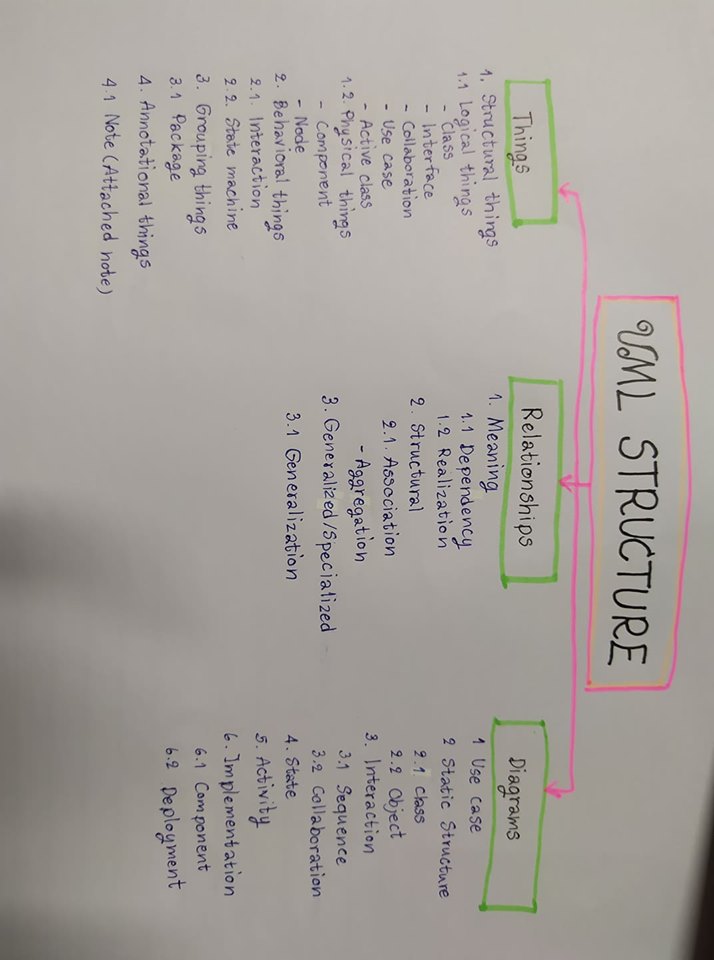 UML STRUCTURE
Things
1. Structural things
1.1 Logical things
- Class
- Interface
- Collaboration
- Use case
- Active class
1.2. Physical things
- Component
- Node
2. Behavioral things
2.1. Interaction
2.2. State machine
3. Grouping things
3.1 Package
4. Annotational things
4.1 Note (Attached note)
Relationships
1. Meaning
1.1 Dependency
1.2 Realization
2. Structural
2.1. Association
- Aggregation
3. Generalized/Specialized
3.1 Generalization
Diagrams
1 Use case
2 Static Structure
2.1 Class
2.2 Object
3. Interaction
3.1 Sequence
3.2 Collaboration
4. State
5. Activity
6. Implementation
6.1 Component
6.2 Deployment